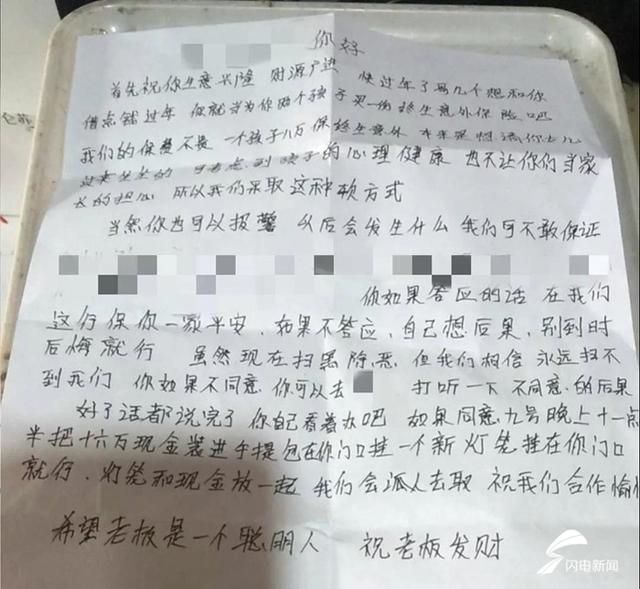 你好
首先祝你生意兴隆 财源广进 快过年了哥几个想和你
借点钱过年 你就当为你两个孩子买一份终生意外保险吧
我们的保费不贵 一个孩子八万保终生意外 本来是想请你去儿
到孩子的心理健康 也不让你们当家
长的担心 所以我们采取这种软方式
当然你也可以报警 以后会发生什么 我们可不敢保证
你如果答应的话 在我们
这行保你一家平安，如果不答应，自己想后果，别到时
后悔就行 虽然现在扫黑除恶 但我们相信 永远扫不
到我们 你如果不同意 你可以去 打听一下 不同意的后果
好了话都说完了 你自己看着办吧 如果同意 九号晚上十一点
半把十六万现金装进手提包在你门口挂一个新灯笼挂在你门口
就行，灯笼和现金放一起 我们会派人去取 祝我们合作愉
希望老板是一个聪明人 祝老板发财
闪电新闻